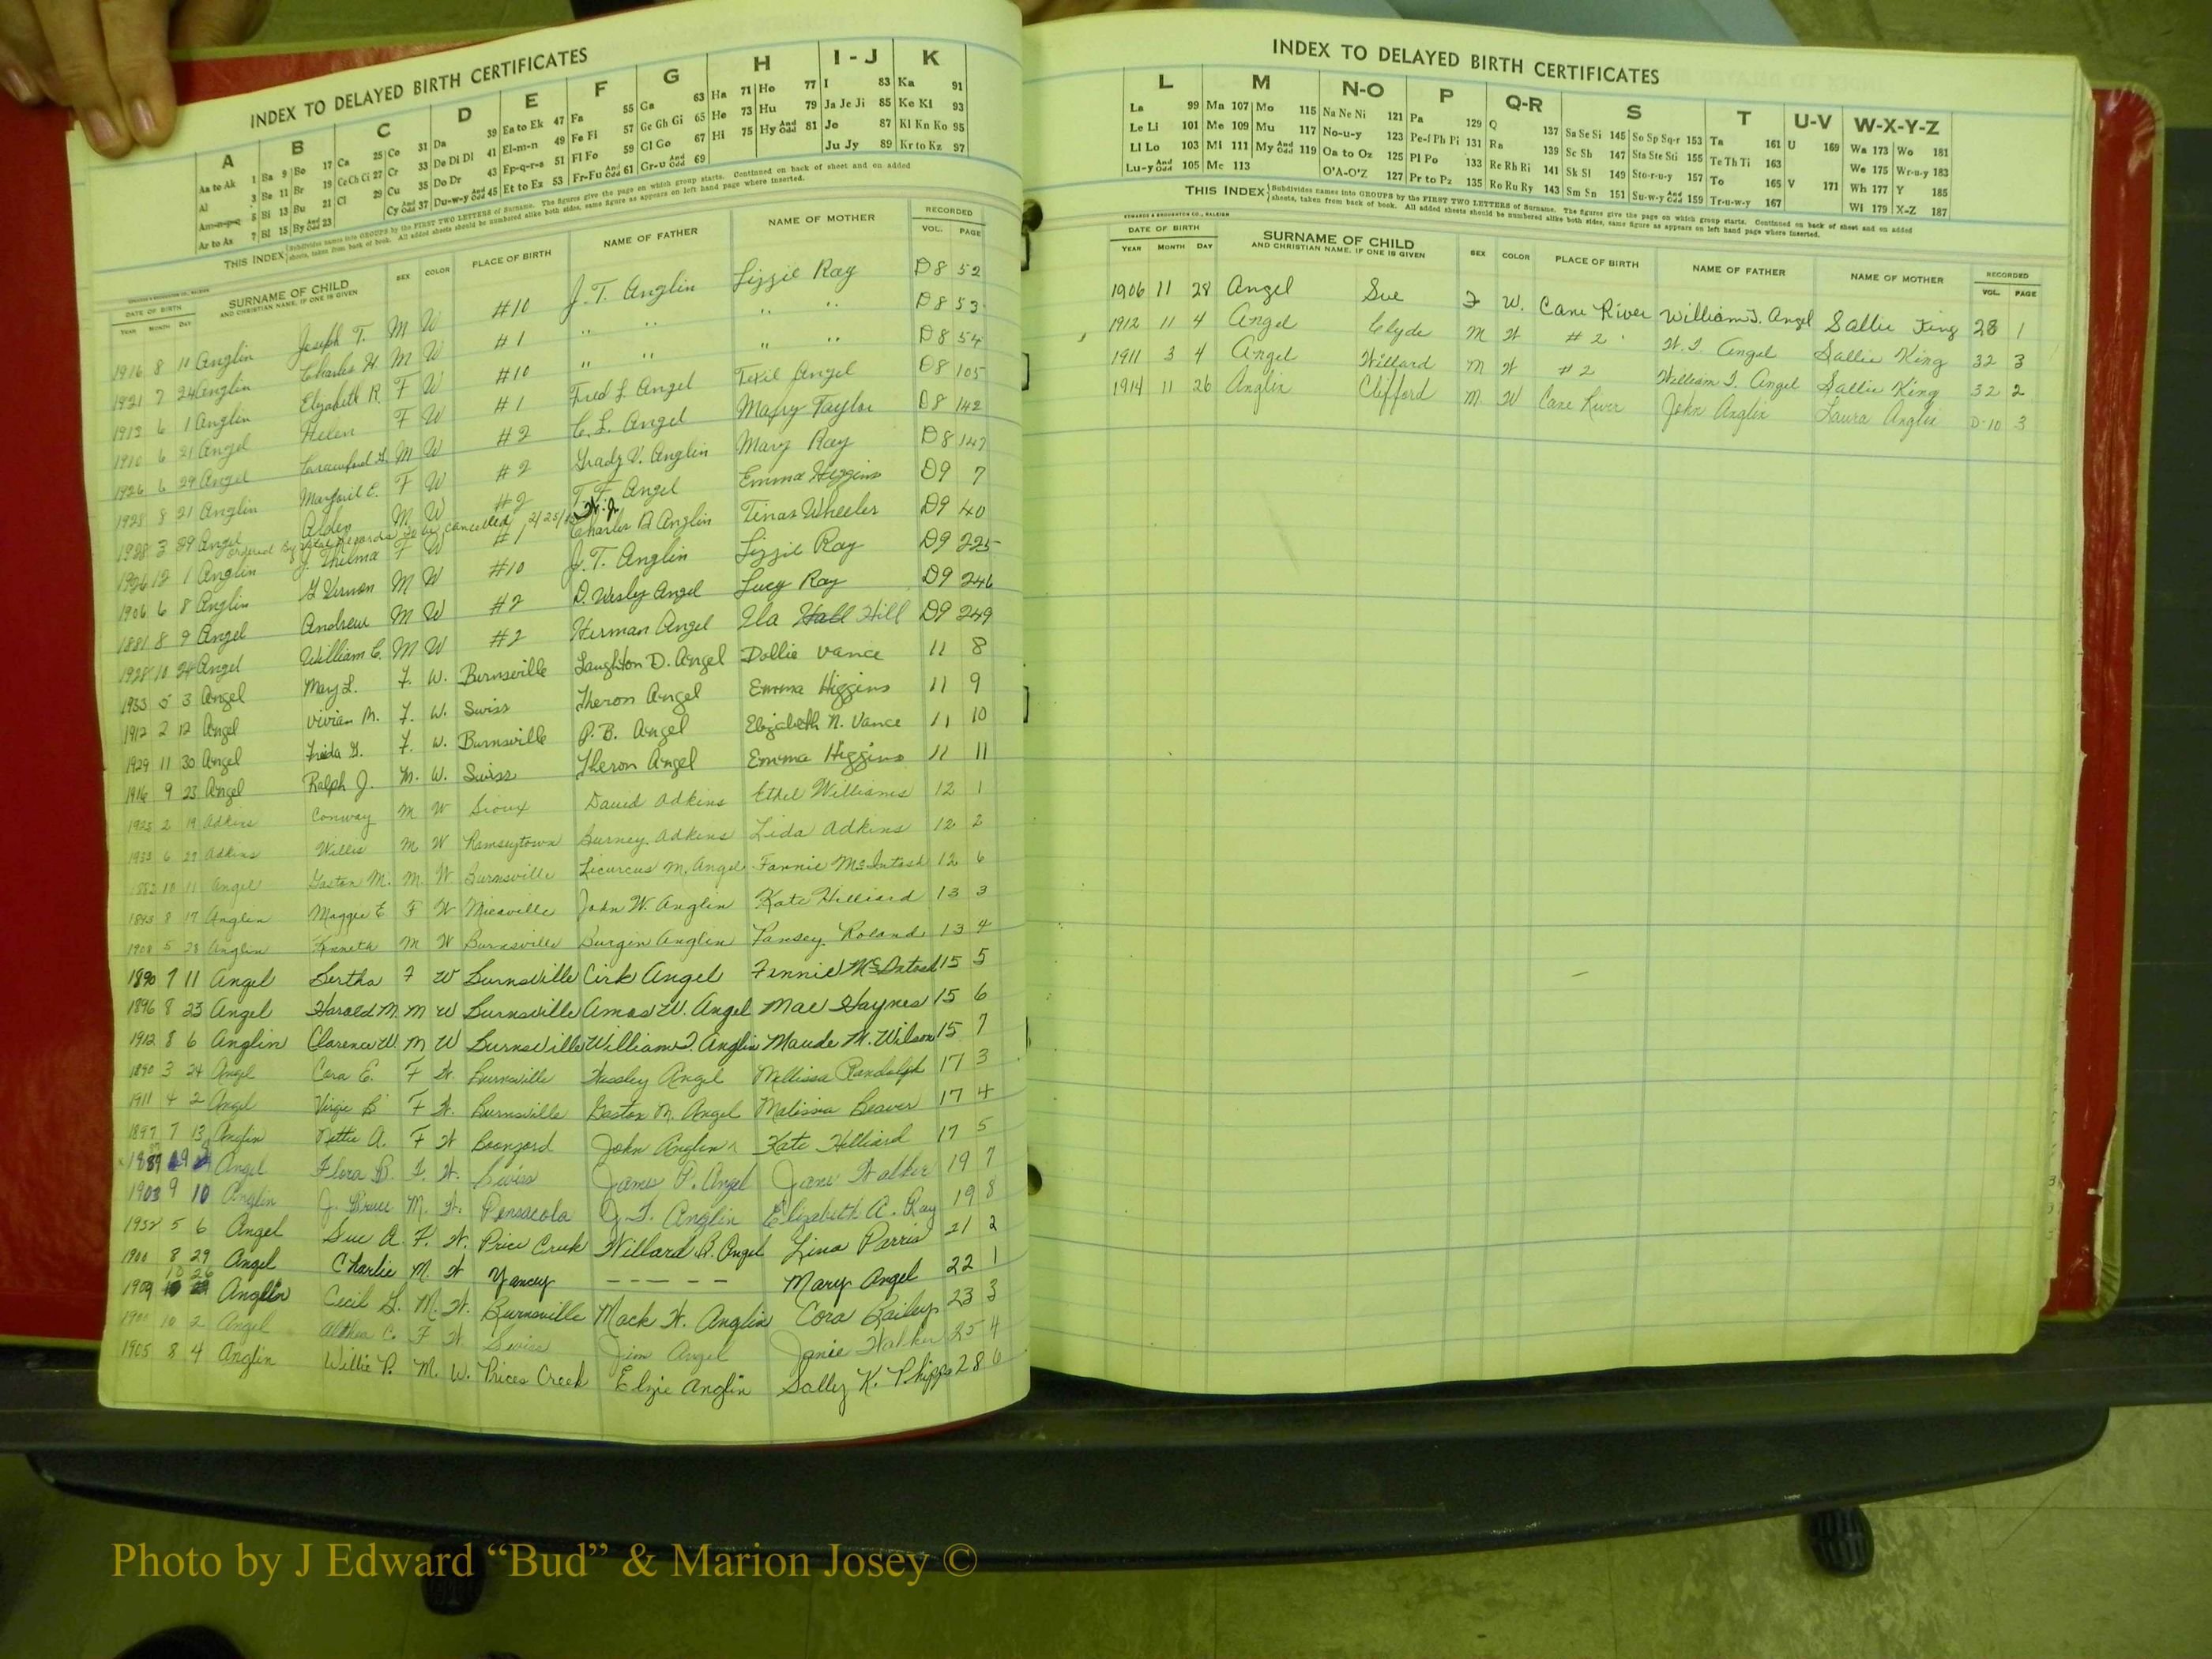 INDEX TO DELAYED BIRTH CERTIFICATES
A B C D E F G H I - J K
Aa to Ak 1 Ba 9 Bo 17 Ca 25 Co 31 Da 39 Ea to Ek 47 Fa 55 Ga 63 Ha 71 Ho 77 I 83 Ka 91
Al 3 Be 11 Br 19 Ce Ch Ci 27 Cr 33 De Di Dl 41 El-m-n 49 Fe Fi 57 Ge Gh Gi 65 He 73 Hu 79 Ja Je Ji 85 Ke Ki 93
Am-n-p-q 5 Bi 13 Bu 21 Cl 29 Cu 35 Do Dr 43 Ep-q-r-s 51 Fl Fo 59 Gl Go 67 Hi 75 Hy And Odd 81 Jo 87 Kl Kn Ko 95
Ar to Az 7 Bl 15 By And Odd 23 Cy And Odd 37 Du-w-y And Odd 45 Et to Ez 53 Fr-Fu And Odd 61 Gr-u And Odd 69 Ju Jy 89 Kr to Kz 97
THIS INDEX Subdivides names into GROUPS by the FIRST TWO LETTERS of Surname. The figures give the page on which group starts. Continued on back of sheet and on added
sheets, taken from back of book. All added sheets should be numbered alike both sides, same figure as appears on left hand page where inserted.
DATE OF BIRTH SURNAME OF CHILD SEX COLOR PLACE OF BIRTH NAME OF FATHER NAME OF MOTHER RECORDED
YEAR MONTH DAY AND CHRISTIAN NAME, IF ONE IS GIVEN VOL. PAGE
1916 8 11 Anglin Joseph T. M W #10 J. T. Anglin Lizzie Ray D8 52
1921 7 24 Anglin Charles H. M W #1 " " " " D8 53
1913 6 1 Anglin Elizabeth R F W #10 " " " " D8 54
1910 6 21 Angel Helen F W #1 Fred L. Angel Angel D8 105
1926 6 29 Angel Crawford M W #2 C. L. Angel Mary Taylor D8 142
1928 8 21 Anglin Marjorie C. F W #2 Grady V. Anglin Mary Ray D8 147
1928 3 29 Angel Alden M W #2 T. F. Angel Emma Higgins D9 7
ordered by Vital Records to be cancelled 2/25/
1926 12 1 Anglin J. Thelma F W #1 Charles B Anglin Tina Wheeler D9 40
1906 6 8 Anglin G Vernon M W #10 J. T. Anglin Lizzie Ray D9 225
1881 8 9 Angel Andrew M W #2 D. Wesley Angel Lucy Ray D9 246
1928 10 24 Angel William C. M W #2 Herman Angel Ila Hall Hill D9 249
1933 5 3 Angel Mary L. F. W. Burnsville Laughton D. Angel Dollie Vance 11 8
1912 2 12 Angel Vivian M. F. W. Swiss Theron Angel Emma Higgins 11 9
1929 11 30 Angel Freda G. F. W. Burnsville P. B. Angel Elizabeth N. Vance 11 10
1916 9 23 Angel Ralph J. M. W. Swiss Theron Angel Emma Higgins 11 11
1925 2 19 Adkins Conway M W Sioux David Adkins Ethel Williams 12 1
1933 6 27 Adkins Willis M W Ramseytown Burney Adkins Lida Adkins 12 2
1883 10 11 Angel Gaston M. M. W Burnsville Licurcus M. Angel Fannie McIntosh 12 6
1895 8 17 Anglin Maggie E F W Micaville John W. Anglin Kate Hilliard 13 3
1908 5 28 Anglin Kenneth M W Burnsville Burgin Anglin Pansey Roland 13 4
1890 7 11 Angel Bertha F W Burnsville Cirk Angel Fennie McIntosh 15 5
1896 8 23 Angel Harold M. M W Burnsville Amos W. Angel Mae Haynes 15 6
1912 8 6 Anglin Clarence W. M W Burnsville William T. Anglin Maude M. Wilson 15 7
1890 3 24 Angel Cora E. F W. Burnsville Wessley Angel Mellissa Randolph 17 3
1911 4 2 Angel Virgie B. F W. Burnsville Gaston M. Angel Malissia Beaver 17 4
1897 7 13 Anglin Nettie A. F W Boonford John Anglin Kate Hilliard 17 5
1889 9 Angel Flora B. F. W. Swiss James P. Angel Jane Walker 19 7
1903 9 10 Anglin J. Bruce M. W. Pensacola J. T. Anglin Elizabeth A. Ray 19 8
1932 5 6 Angel Sue A. F. W. Price Creek Willard B. Angel Lina Parris 21 2
1900 8 29 Angel Charlie M. W Yancey - - - - - Mary Angel 22 1
1909 10 26 Anglin Cecil G. M. W. Burnsville Mack W. Anglin Cora Bailey 23 3
10 2 Angel Althea C. F W. Swiss Jim Angel Janie Walker 25 4
1905 8 4 Anglin Willie P. M. W. Prices Creek Elzie Anglin Sally K. Phipps 28 6
INDEX TO DELAYED BIRTH CERTIFICATES
L M N-O P Q-R S T U-V W-X-Y-Z
La 99 Ma 107 Mo 115 Na Ne Ni 121 Pa 129 Q 137 Sa Se Si 145 So Sp Sq-r 153 Ta 161 U 169 Wa 173 Wo 181
Le Li 101 Me 109 Mu 117 No-u-y 123 Pe-f Ph Pi 131 Ra 139 Sc Sh 147 Sta Ste Sti 155 Te Th Ti 163 We 175 Wr-u-y 183
Ll Lo 103 Mi 111 My And Odd 119 Oa to Oz 125 Pl Po 133 Re Rh Ri 141 Sk Sl 149 Sto-r-u-y 157 To 165 V 171 Wh 177 Y 185
Lu-y And Odd 105 Mc 113 O'A-O'Z 127 Pr to Pz 135 Ro Ru Ry 143 Sm Sn 151 Su-w-y And Odd 159 Tr-u-w-y 167 Wi 179 X-Z 187
THIS INDEX Subdivides names into GROUPS by the FIRST TWO LETTERS of Surname. The figures give the page on which group starts. Continued on back of sheet and on added
sheets, taken from back of book. All added sheets should be numbered alike both sides, same figure as appears on left hand page where inserted.
EDWARDS & BROUGHTON CO., RALEIGH
DATE OF BIRTH SURNAME OF CHILD SEX COLOR PLACE OF BIRTH NAME OF FATHER NAME OF MOTHER RECORDED
YEAR MONTH DAY AND CHRISTIAN NAME, IF ONE IS GIVEN VOL. PAGE
1906 11 28 Angel Sue F W. Cane River William T. Angel Sallie King 28 1
1912 11 4 Angel Clyde M W #2 W. T. Angel Sallie King 32 3
1911 3 4 Angel Willard M W #2 William T. Angel Sallie King 32 2
1914 11 26 Anglin Clifford M W Cane River John Anglin Laura Anglin D-10 3
Photo by J Edward “Bud” & Marion Josey ©